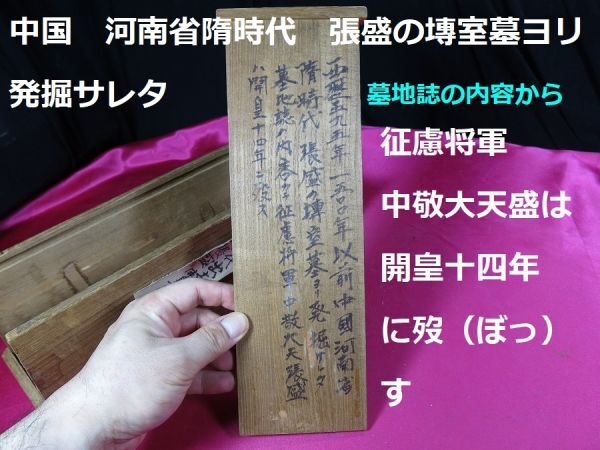 中国　河南省隋時代　張盛の塼室墓ヨリ
発掘サレタ
墓地誌の内容から
征慮将軍
中敬大天盛は
開皇十四年
に歿（ぼっ）
す
西暦五九五年一五〇〇年以前中国河南省
隋時代張盛ノ塼室墓ヨリ発掘サレタ
墓地誌ノ内容カラ征慮将軍中散大夫張盛
ハ開皇十四年ニ歿ス